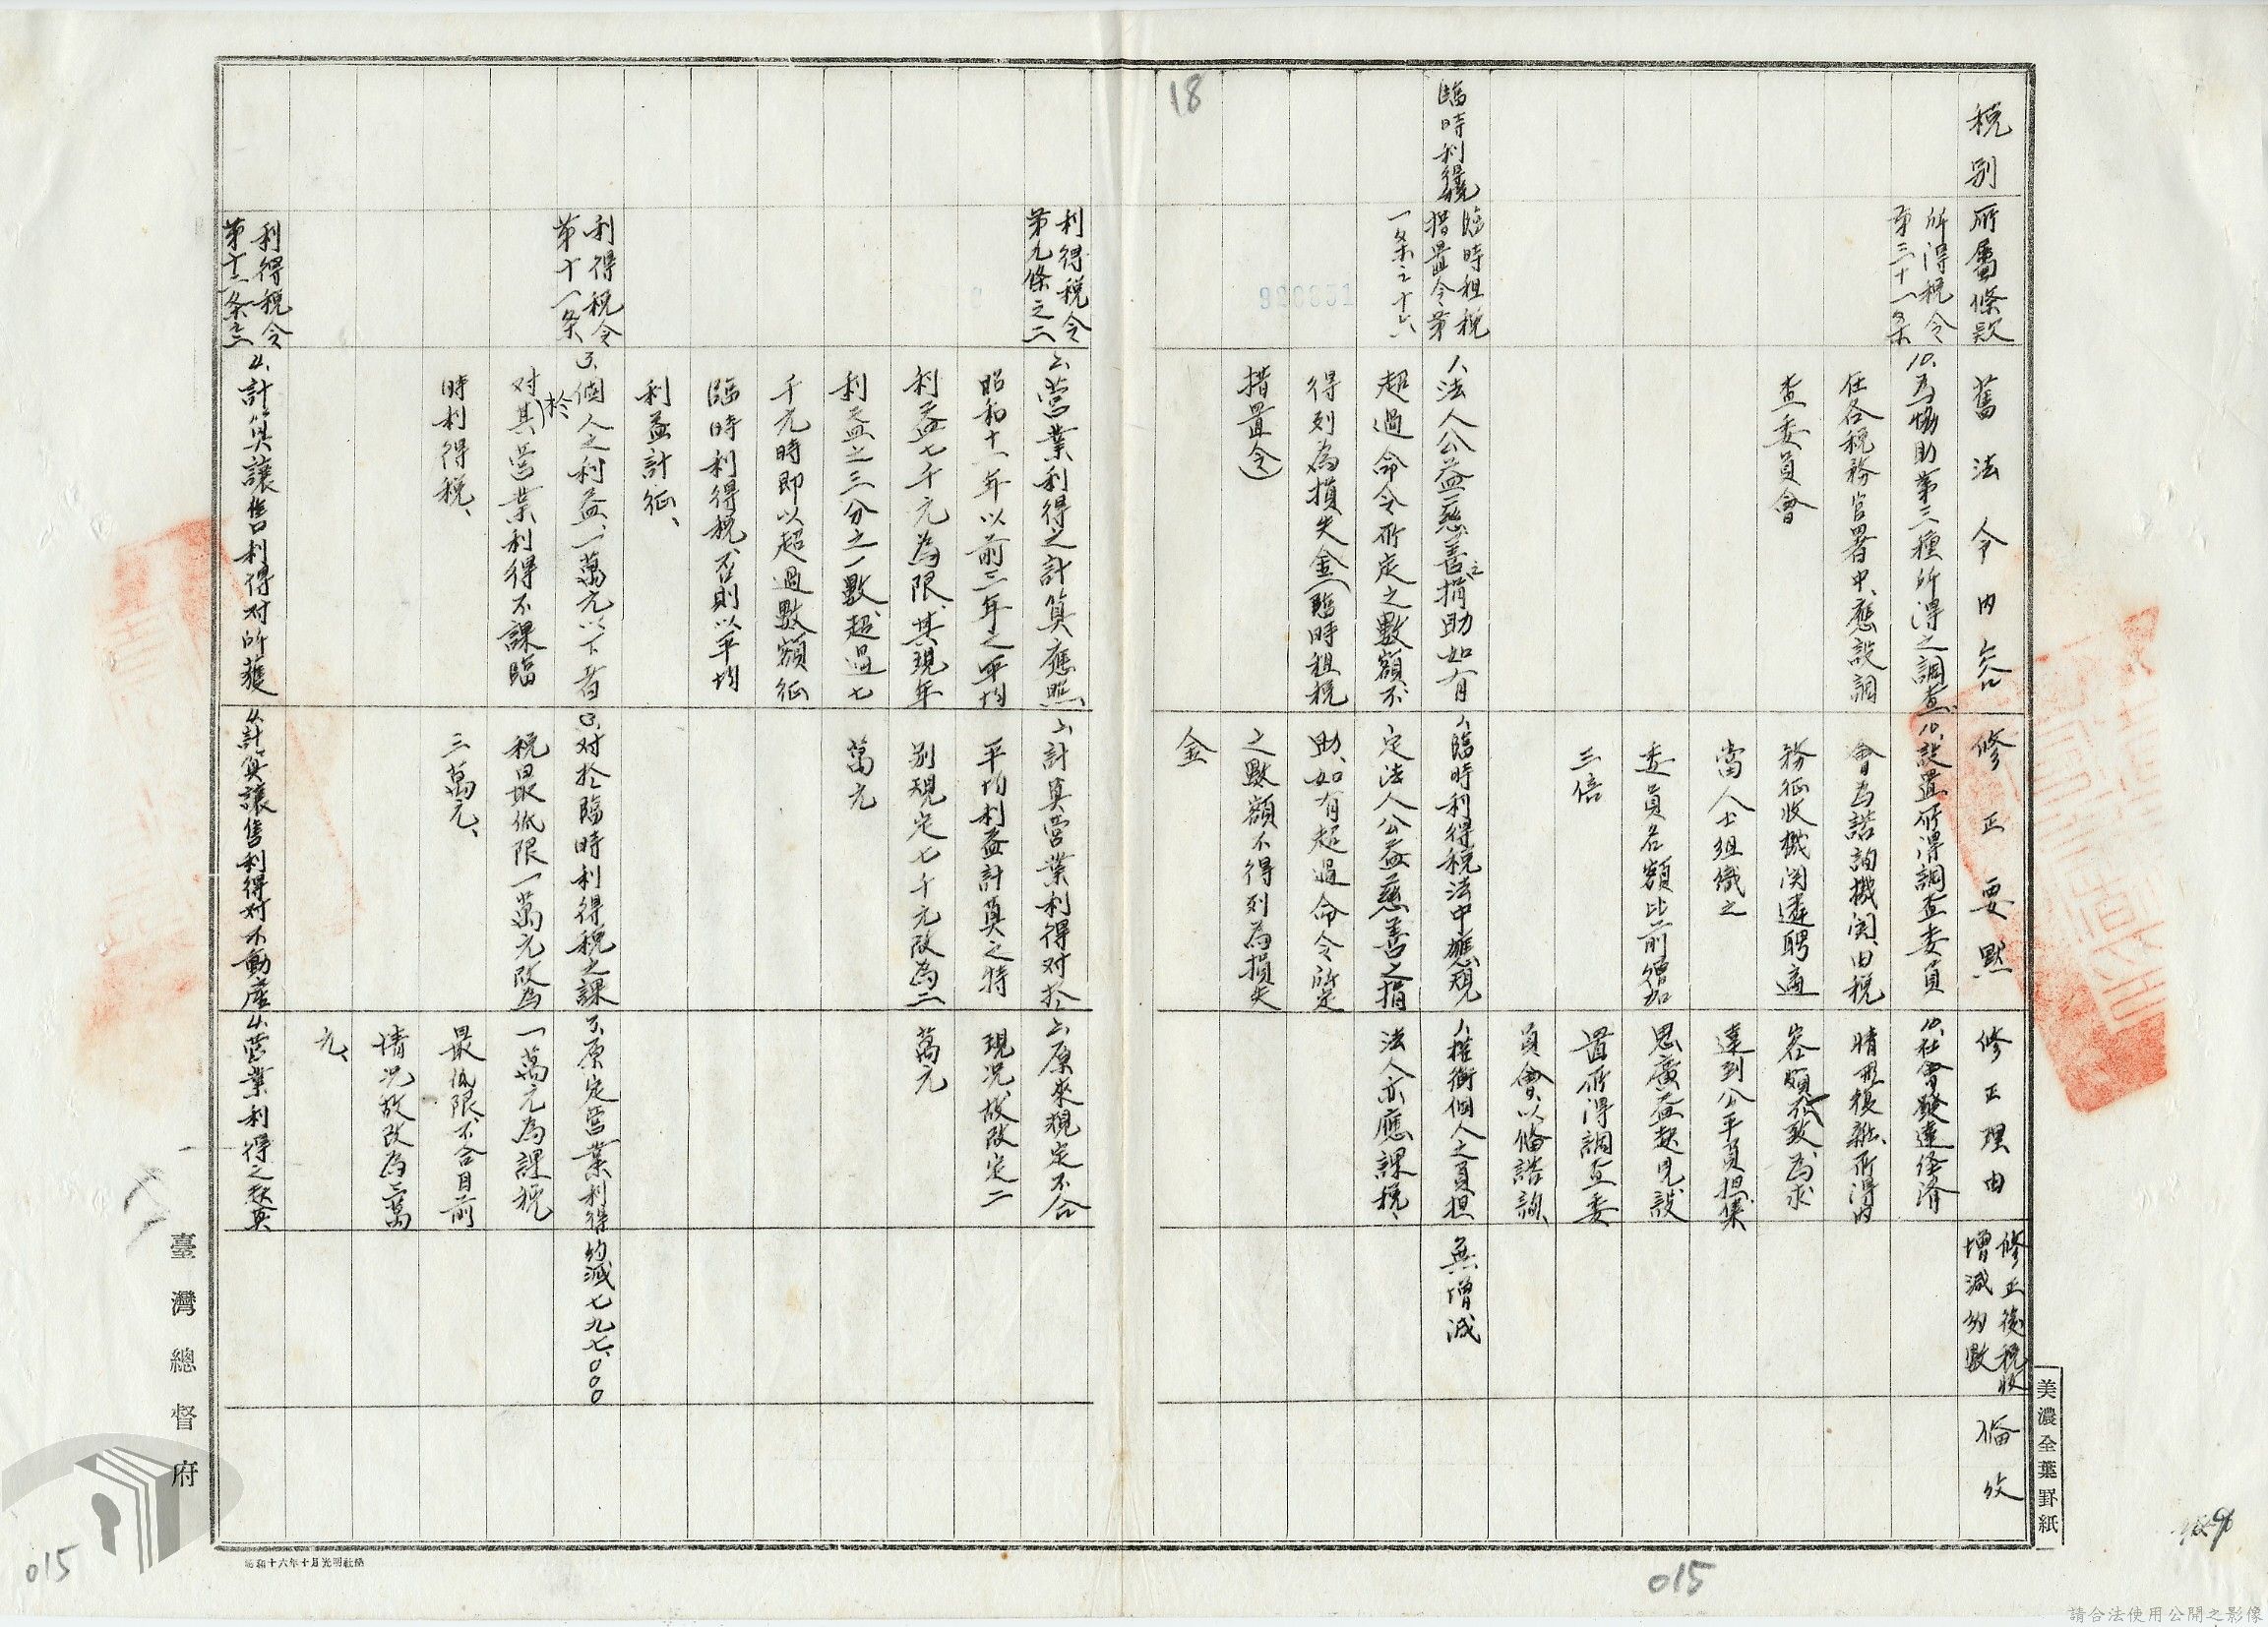 稅別
所屬條款
舊法令內容
修正要點
修正理由
修正後稅收
增減約數
備攷
所得稅令
第三十一条
10、為協助第三種所得之調查、
任各稅務官署中、應設調
查委員會
10、設置所得調查委員
會為諮詢機関、由稅
務征收機関遴聘適
當人士組織之
委員名額比前增加
三倍
10、社會發達経済
情形複雜、所得內
容頗不致、為求
達到公平負担集
思廣益起見設
置所得調查委
員會、以備諮詢、
臨時利得稅
臨時租稅
措置令第
一条之十六
1、法人公益慈善之捐助如有
超過命令所定之數額、不
得列為損失金(臨時租稅
措置令)
1、臨時利得稅法中應規
定法人公益慈善之捐
助、如有超過命令所定
之數額不得列為損失
金
1、權衡個人之負担
法人亦應課稅、
無增減
18
利得稅令
第九條之二
2、營業利得之計算應照、
昭和十一年以前三年之平均
利益七千元為限、其現年
利益之三分之一數、超過七
千元時即以超過數額征
臨時利得稅、否則以平均
利益計征、
2、計算營業利得对於
平均利益計算之特
別規定七千元改為二
萬元
2、原來規定不合
現況、故改定二
萬元
利得稅令
第十一条
3、個人之利益、一萬元以下者
对(於)其營業利得不課臨
時利得稅、
3、对於臨時利得稅之課
稅最低限一萬元改為
三萬元、
3、原定營業利得
一萬元為課稅
最低限、不合目前
情况故改為三萬
元、
約減七九七、000
利得稅令
第十二条之三
4、計算讓售利得对所獲
4、計算讓售利得对不動產
4、營業利得之获與
臺灣總督府
美濃全葉罫紙
昭和十六年十月光明社納
015
015
請合法使用公開之影像